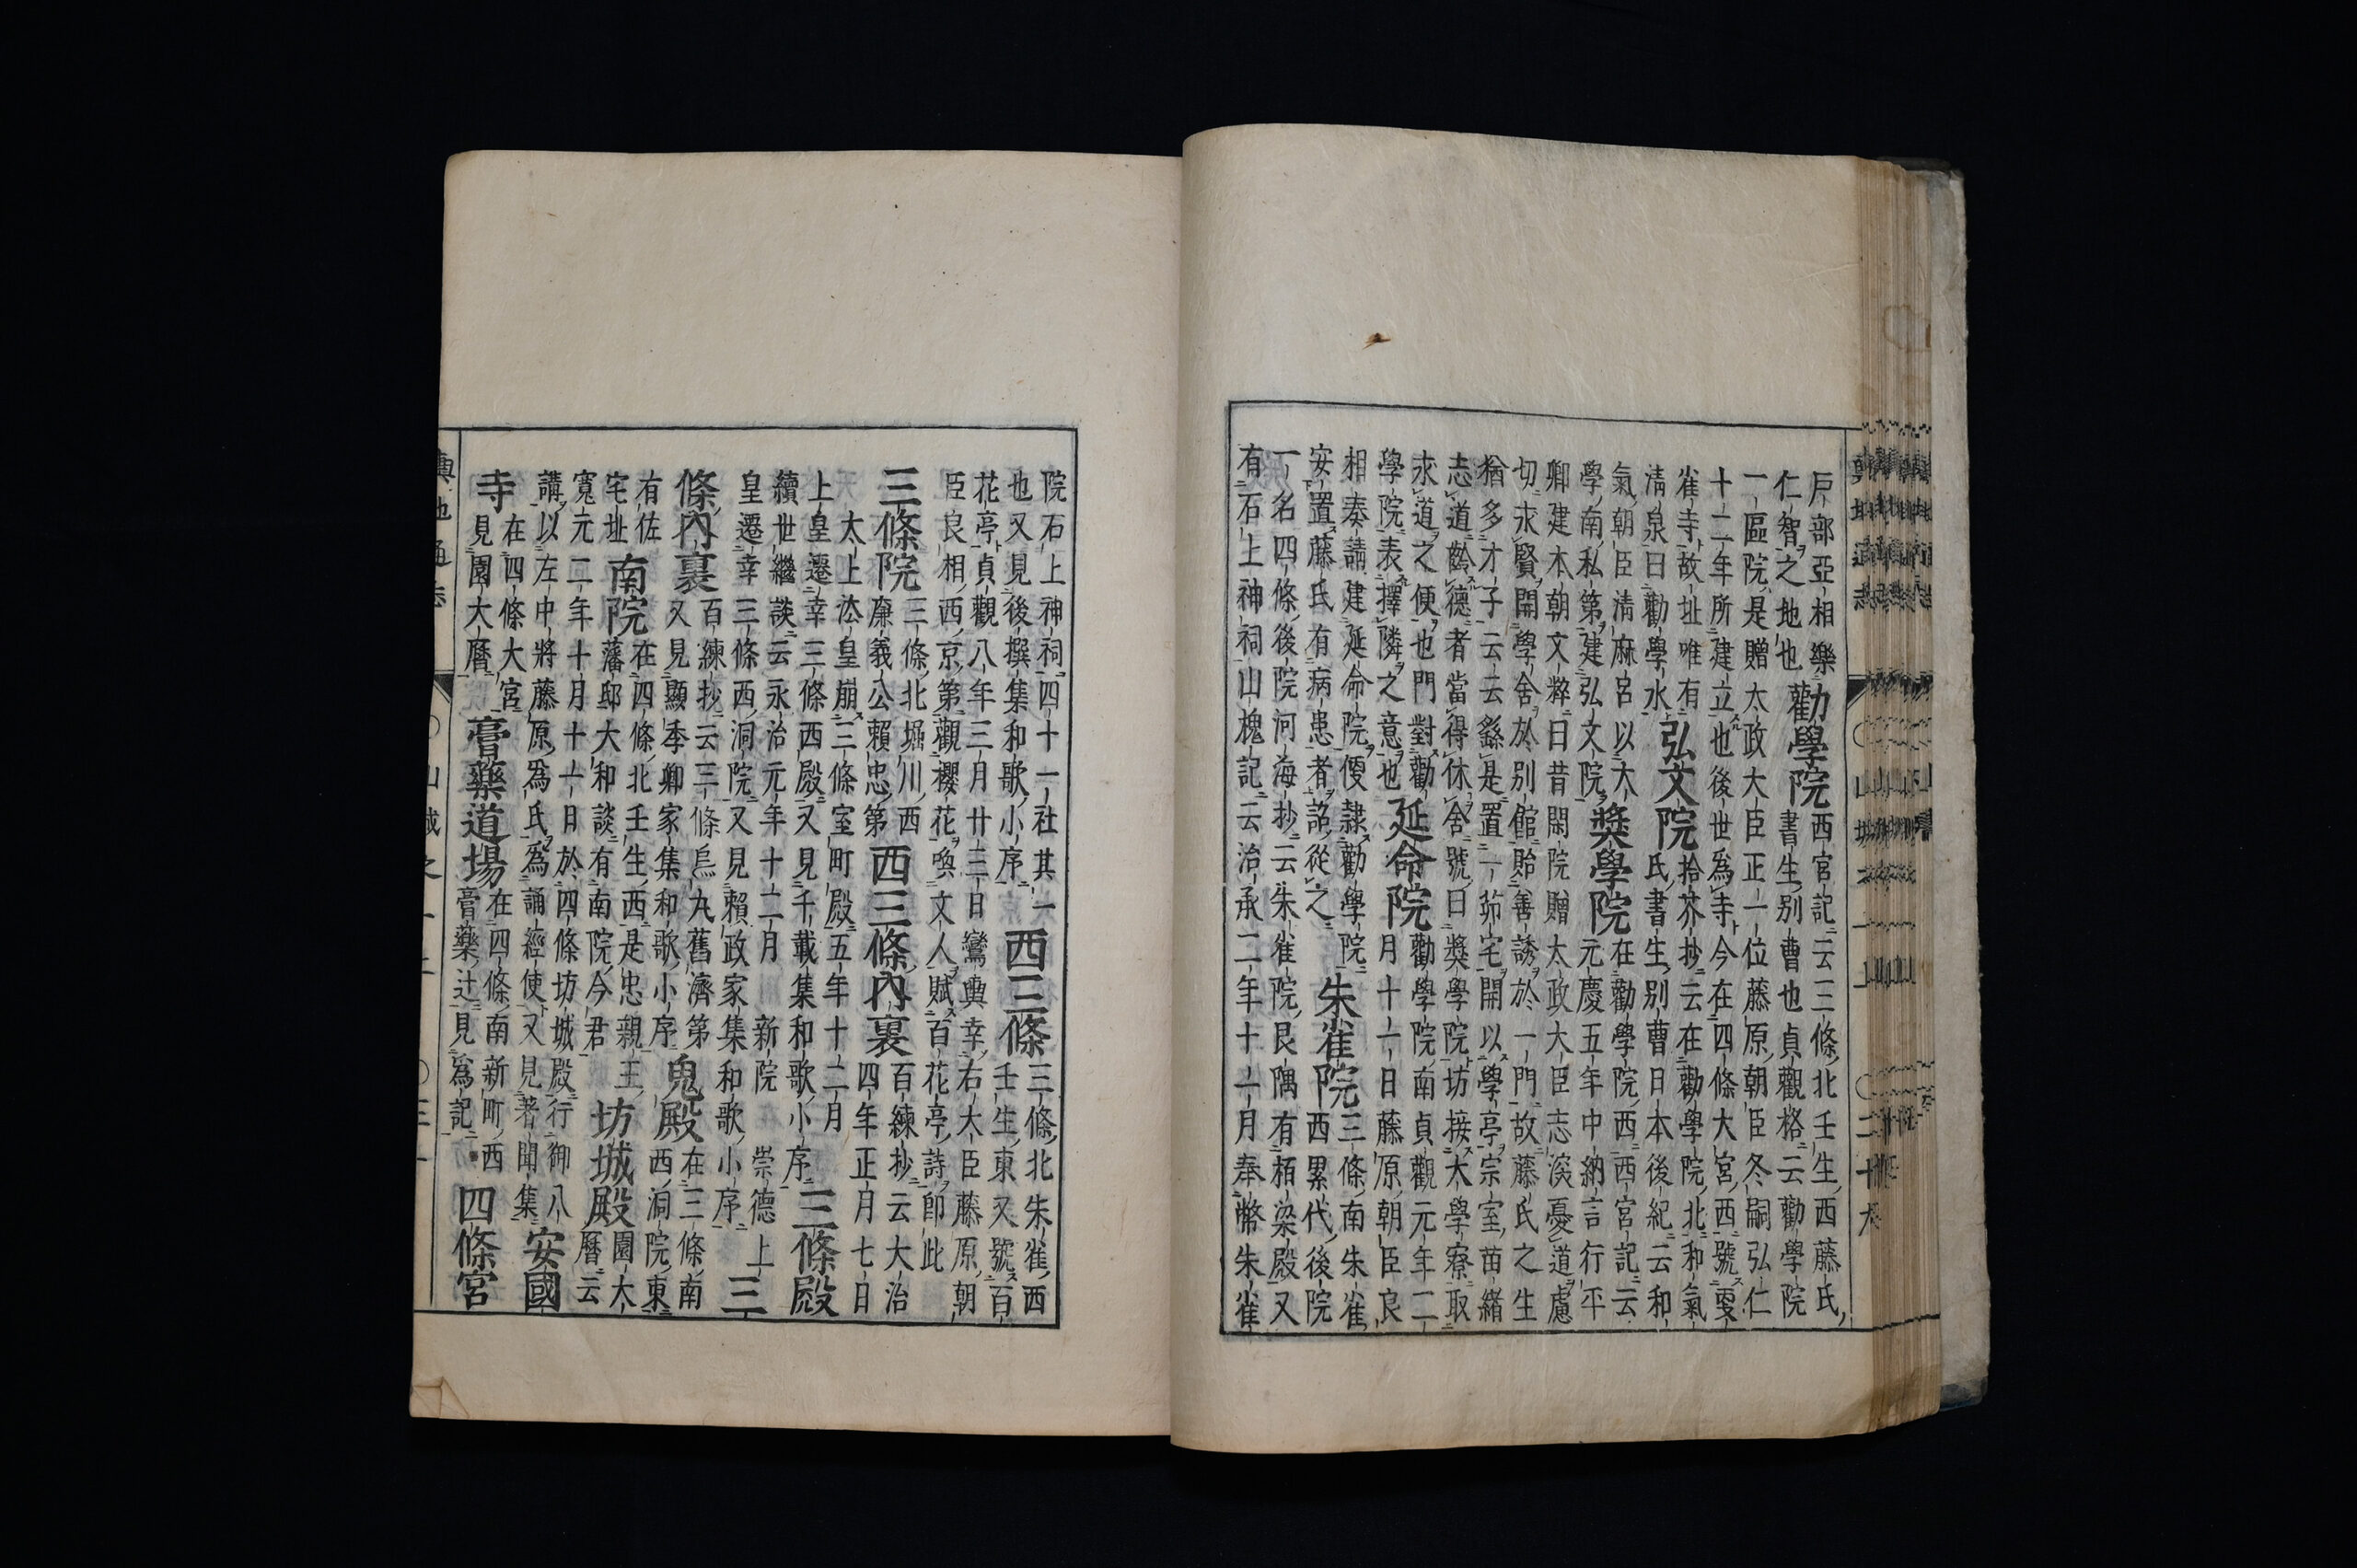 戶部亞相樂
仁智之地也
勸學院
西宮記云三條北壬生西藤氏
書生別曹也貞觀格云勸學院
一區院是贈太政大臣正一位藤原朝臣冬嗣弘仁
十二年所建立也後世爲寺今在四條大宮西號更
雀寺故址唯有
清泉曰勸學水
弘文院
拾芥抄云在勸學院北和氣
氏書生別曹日本後紀云和
氣朝臣清麻呂以大
學南私第建弘文院
奬學院
在勸學院西西宮記云
元慶五年中納言行平
卿建本朝文粹曰昔閑院贈太政大臣志深憂道慮
切求賢開學舍於別館貽善誘於一門故藤氏之生
猶多才子云云繇是置一茆宅開以學亭宗室苗緒
志道齡德者當得休舍號曰奬學院坊接大學寮取
求道之便也門對勸
學院表擇隣之意也
延命院
勸學院南貞觀元年二
月十一日藤原朝臣良
相奏請建延命院便隸勸學院
安置藤氏有病患者詔從之
朱雀院
三條南朱雀
西累代後院
一名四條後院河海抄云朱雀院艮隅有栢梁殿又
有石上神祠山槐記云治承二年十一月奉幣朱雀
院石上神祠四十一社其一
也又見後撰集和歌小序
西三條
三條北朱雀西
壬生東又號百
花亭貞觀八年三月廿三日鸞輿幸右大臣藤原朝
臣良相西京第觀櫻花喚文人賦百花亭詩卽此
三條院
三條北堀川西
廉義公賴忠第
西三條內裏
百練抄云大治
四年正月七日
太上法皇崩三條室町殿五年十二月
上皇遷幸三條西殿又見千載集和歌小序
三條殿
續世繼談云永治元年十二月新院崇德上
皇遷幸三條西洞院又見賴政家集和歌小序
三
條內裏
百練抄云三條烏丸舊濟第
又見顯季卿家集和歌小序
鬼殿
在三條南
西洞院東
有佐
宅址
南院
在四條北壬生西是忠親王
藩邸大和談有南院今君
坊城殿
園大
曆云
寬元二年十月十一日於四條坊城殿行御八
講以左中將藤原爲氏爲誦經使又見著聞集
安國
寺
在四條大宮
見園大曆
膏藥道場
在四條南新町西
膏藥辻見爲記
四條宮